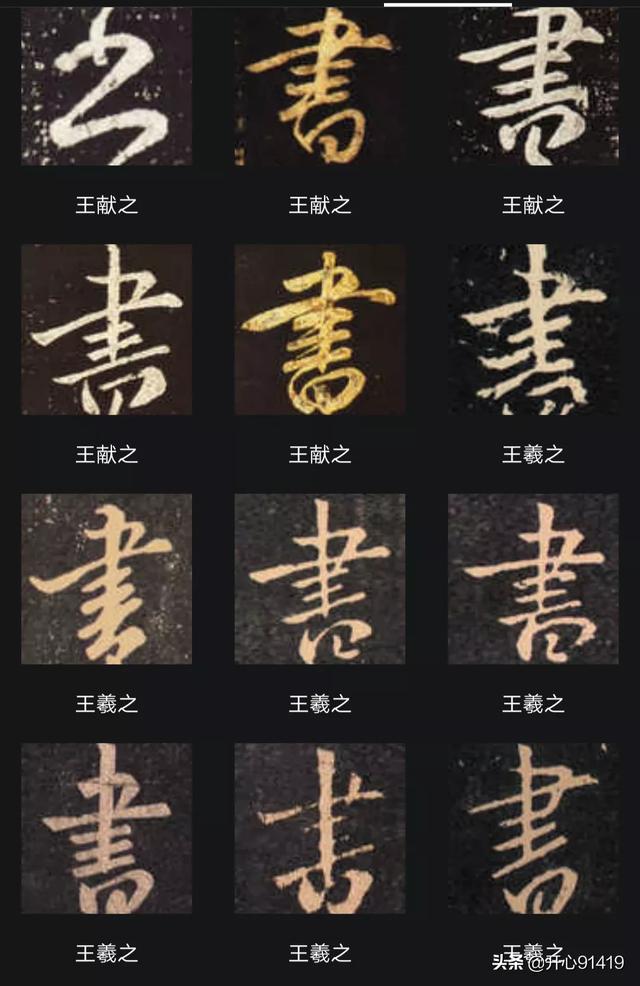 书 書 書
王献之 王献之 王献之
書 書 書
王献之 王献之 王羲之
書 書 書
王羲之 王羲之 王羲之
書 書 書
王羲之 王羲之 王羲之
头条 @开心91419